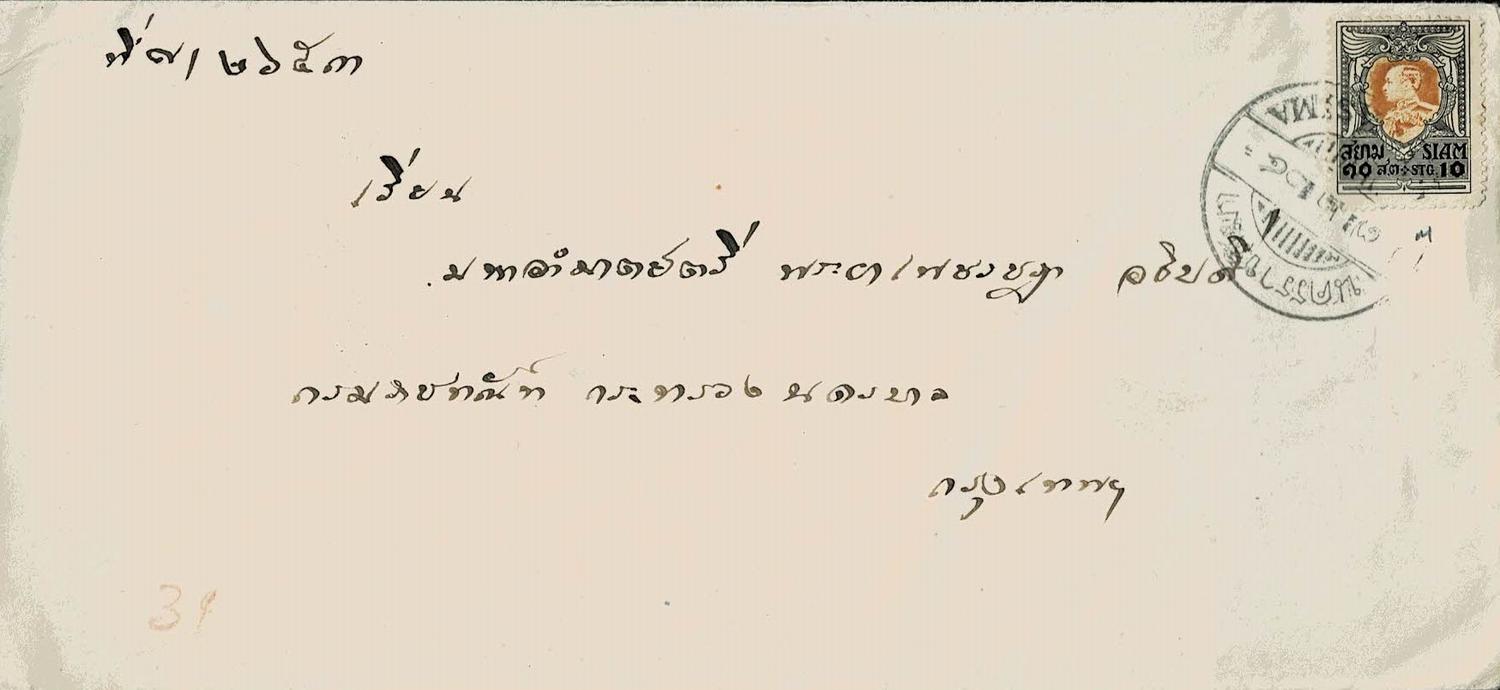 ที่ ๗/๒๖๕๓
สยาม SIAM
๑๐ สต STG. 10
เรียน
มหาอำมาตย์ตรี พระยาเพชรชฎา อธิบดี
กรมราชทัณฑ์ กระทรวงนครบาล
กรุงเทพฯ
นครราชสีมา